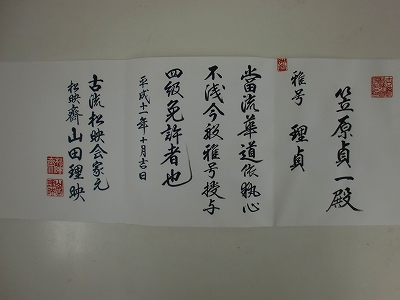 笠原貞一殿
雅号 理貞
當流華道依執心
不浅今般雅号授与
四級免許者也
平成十一年十月吉日
古流松映会家元
松映斎 山田理映